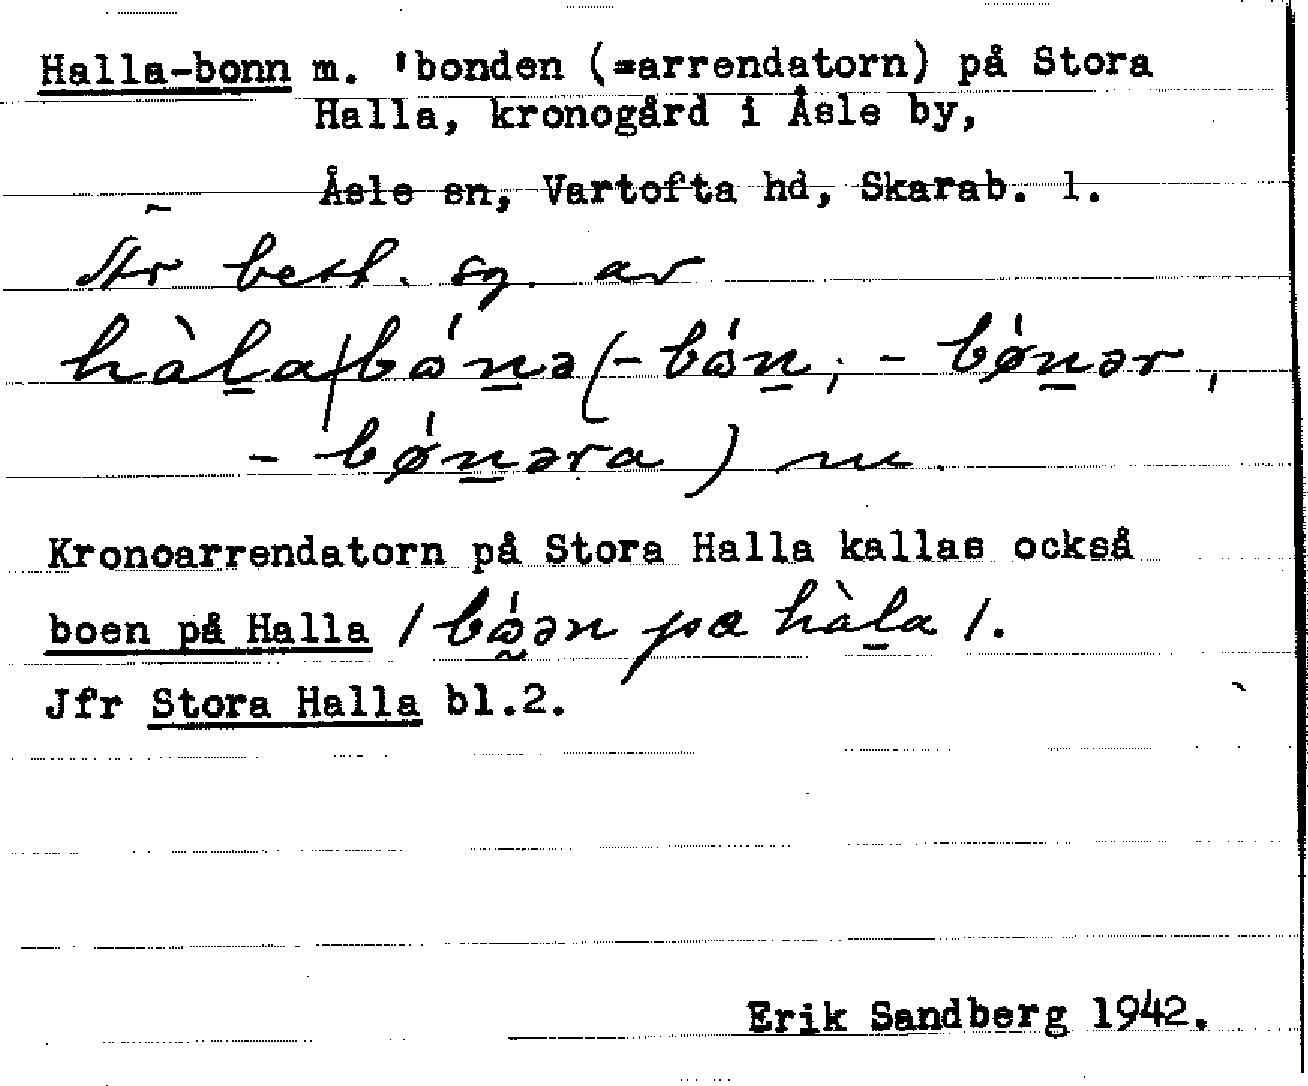 Halla-bonn m. 'bonden (=arrendatorn) på Stora
Halla, kronogård i Åsle by,
Åsle sn, Vartofta hd, Skarab. l.
best. sg. av
hàl̲a|bɷ́n̲ə (-bɷ́n̲; -bǿn̲ər,
-bǿn̲əra) m.
Kronoarrendatorn på Stora Halla kallas också
boen på Halla / bɷ́ən pa hàl̲a /.
Jfr Stora Halla bl.2.
Erik Sandberg 1942.